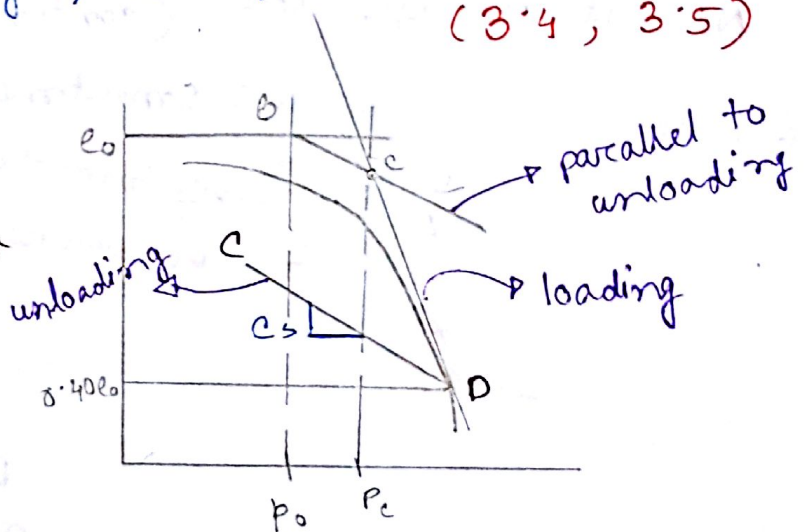 (3.4, 3.5)
B
e₀
C
parallel to
unloading
C
unloading
loading
Cs
0.40e₀
D
p₀
Pc